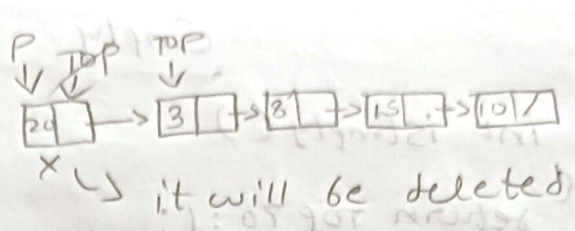 P TOP TOP
20 3 8 15 10
X it will be deleted